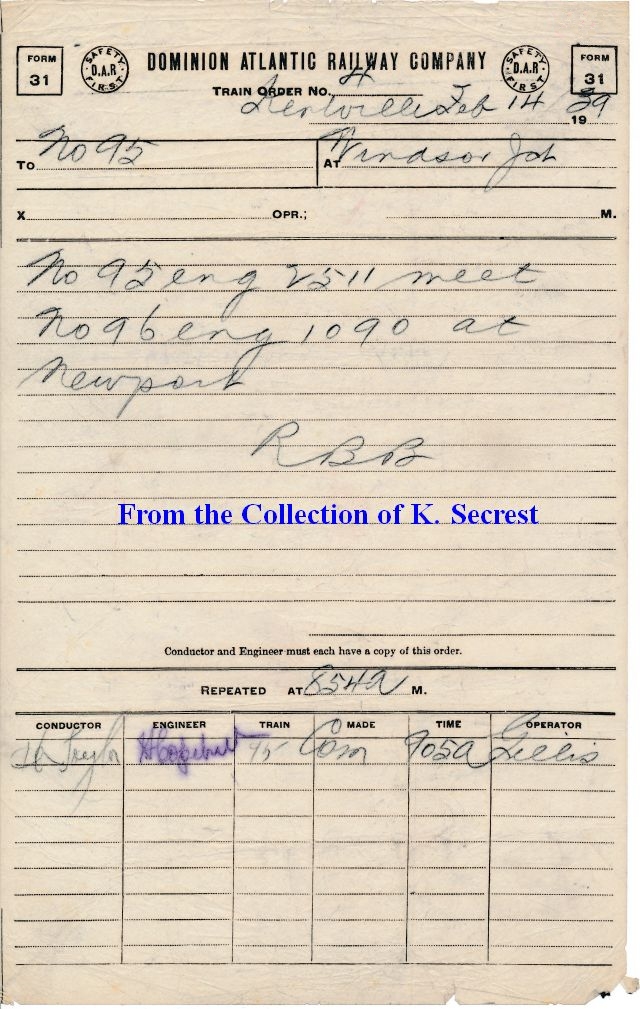 FORM 31 SAFETY FIRST D.A.R DOMINION ATLANTIC RAILWAY COMPANY SAFETY FIRST D.A.R FORM 31
TRAIN ORDER NO. 4
Kentville Feb 14 1939
TO No 95 AT Windsor Jct
X OPR.; M.
No 95 eng 2511 meet
No 96 eng 1090 at
Newport
RBB
From the Collection of K. Secrest
Conductor and Engineer must each have a copy of this order.
REPEATED AT 854a M.
CONDUCTOR ENGINEER TRAIN MADE TIME OPERATOR
95 Com 905a Gillis